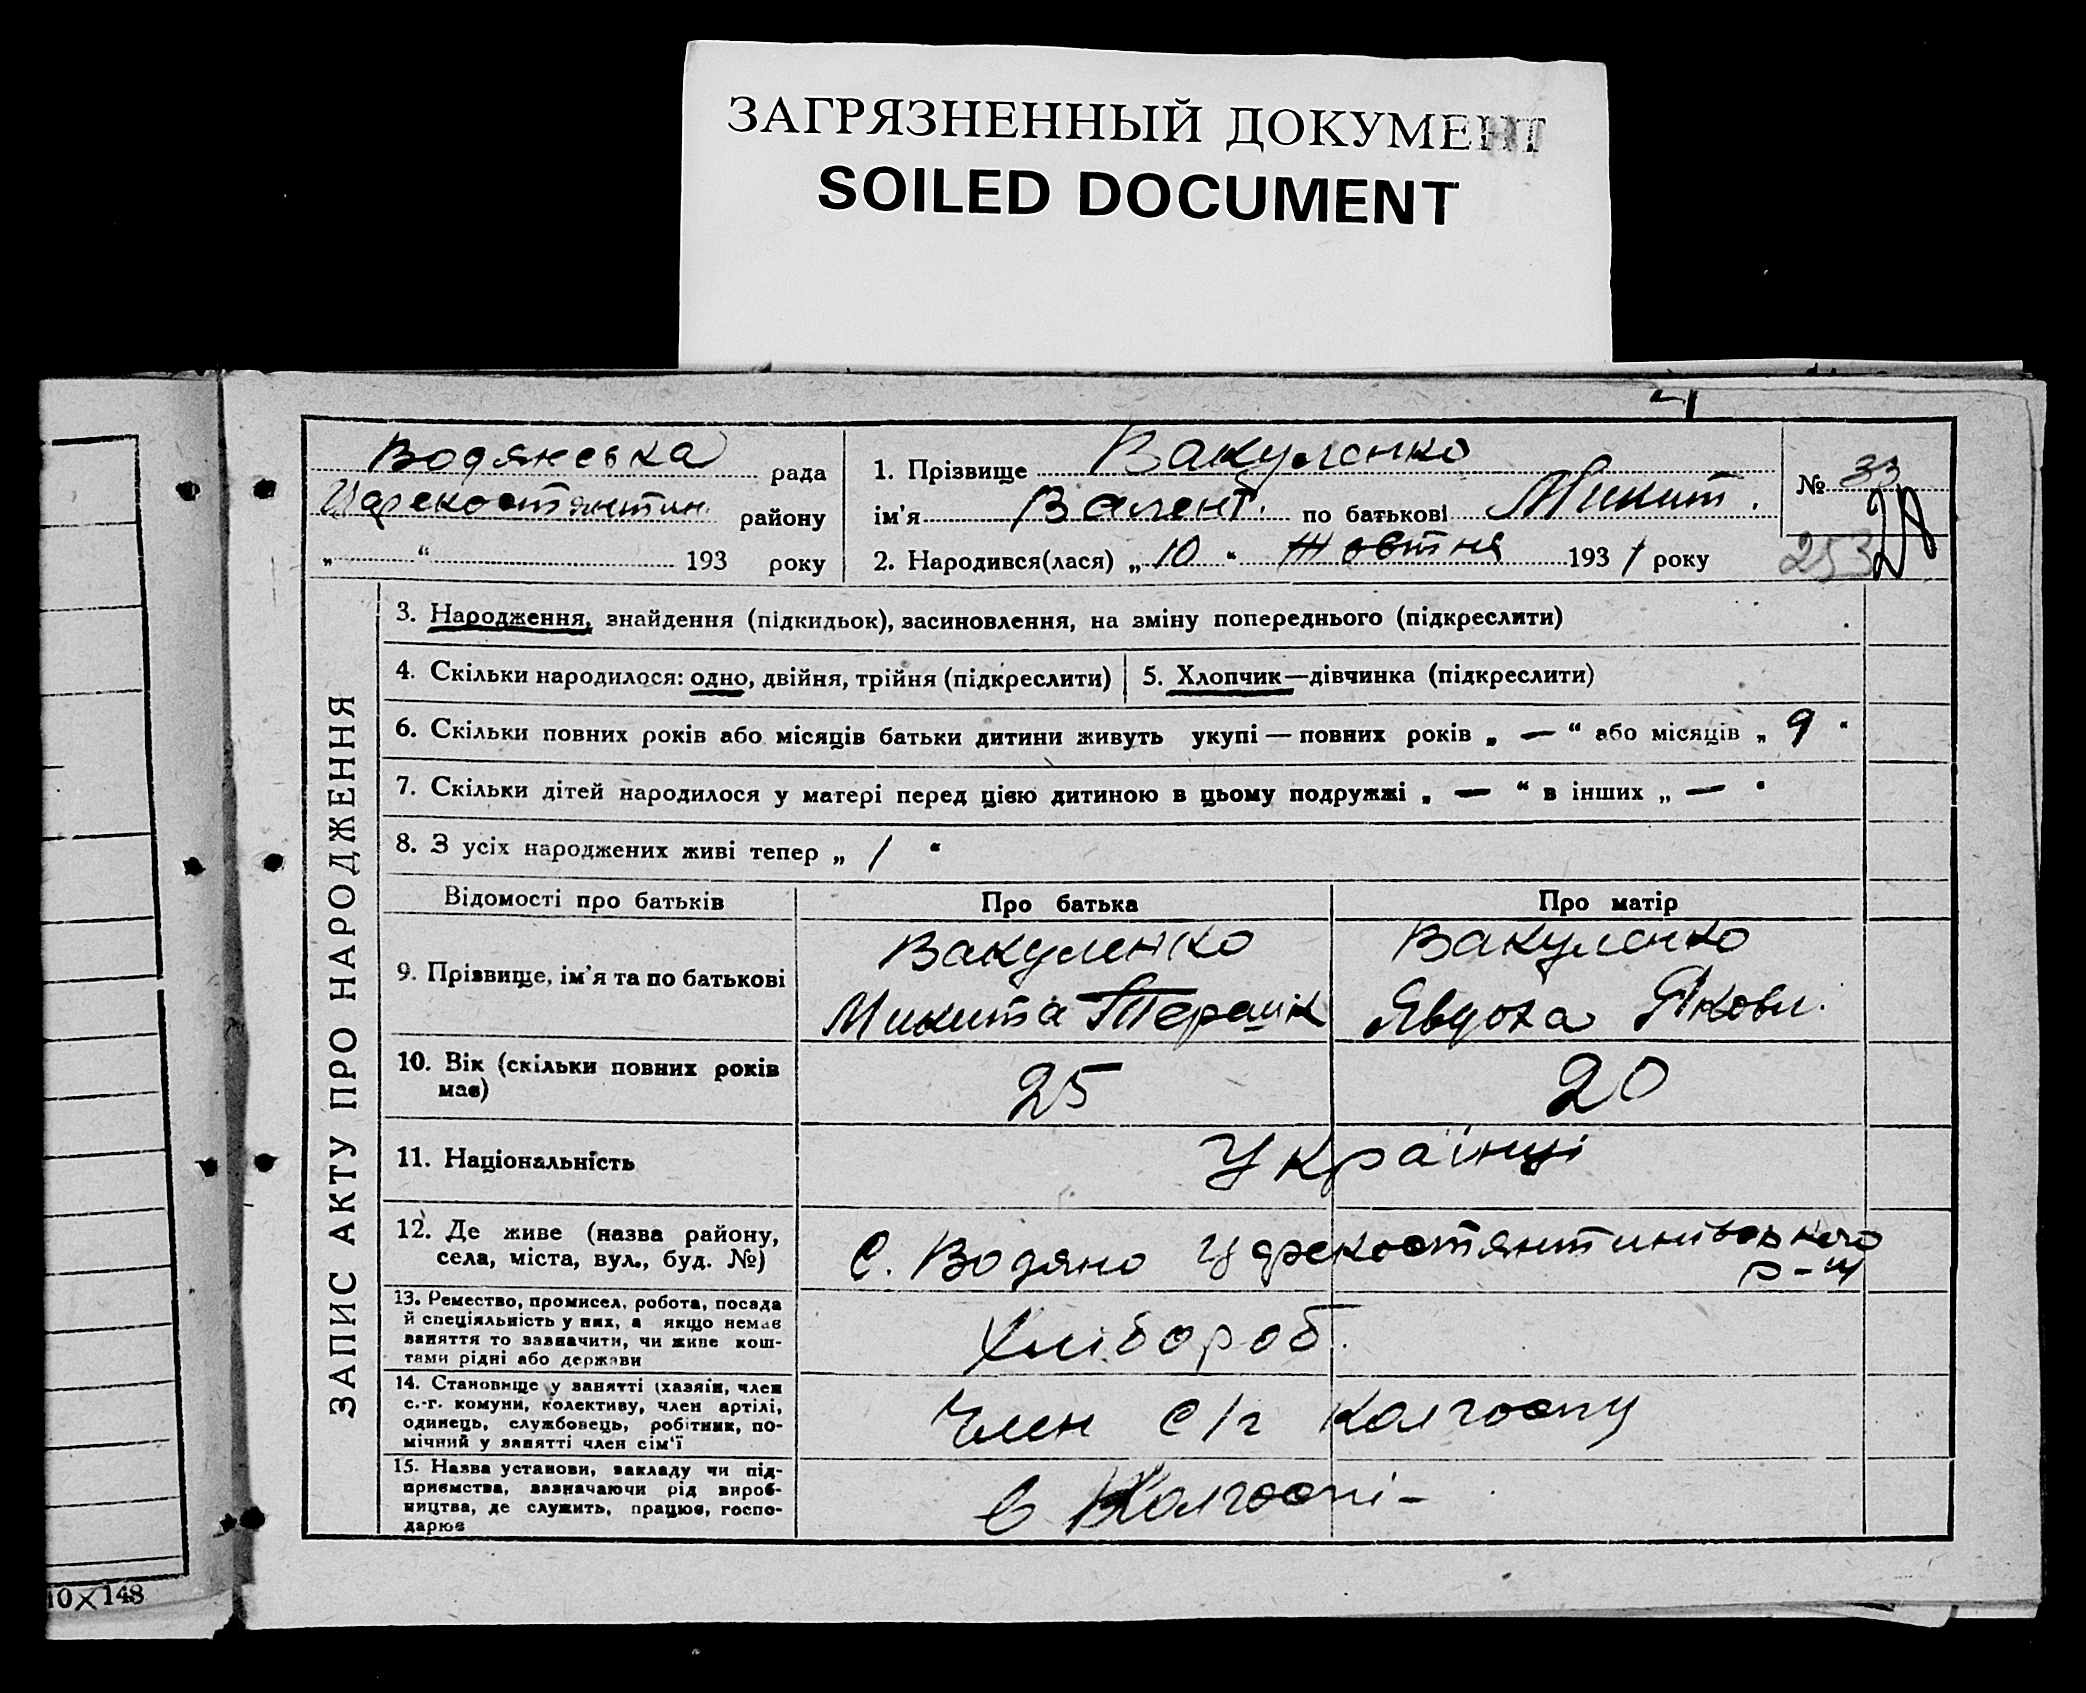 ЗАГРЯЗНЕННЫЙ ДОКУМЕНТ
SOILED DOCUMENT
Водянська рада
Царекостянтин. району
„ “ 193 року
1. Прізвище Вакуленко
ім'я Валент. по батькові Микит.
2. Народився(лася) „ 10 “ Жовтня 1931 року
№ 33
28
253
ЗАПИС АКТУ ПРО НАРОДЖЕННЯ
3. Народження, знайдення (підкидьок), засиновлення, на зміну попереднього (підкреслити)
4. Скільки народилося: одно, двійня, трійня (підкреслити)
5. Хлопчик—дівчинка (підкреслити)
6. Скільки повних років або місяців батьки дитини живуть укупі — повних років „ — “ або місяців „ 9 “
7. Скільки дітей народилося у матері перед цією дитиною в цьому подружжі „ — “ в інших „ — “
8. З усіх народжених живі тепер „ 1 “
Відомості про батьків
Про батька
Про матір
9. Прізвище, ім'я та по батькові
Вакуленко
Микита
Вакуленко
Явдоха Яковл.
10. Вік (скільки повних років
має)
25
20
11. Національність
Українці
12. Де живе (назва району,
села, міста, вул., буд. №)
С. Водяно Царекостянтинівського
р-у
13. Ремество, промисел, робота, посада
й спеціяльність у них, а якщо немає
заняття то зазначити, чи живе кош-
тами рідні або держави
Хлібороб.
14. Становище у занятті (хазяїн, член
с.-г. комуни, колективу, член артілі,
одинець, службовець, робітник, по-
мічний у занятті член сім'ї
Член с/г колгоспу
15. Назва установи, закладу чи під-
приємства, зазначаючи рід вироб-
ництва, де служить, працює, госпо-
дарює
в Колгоспі -
10×148